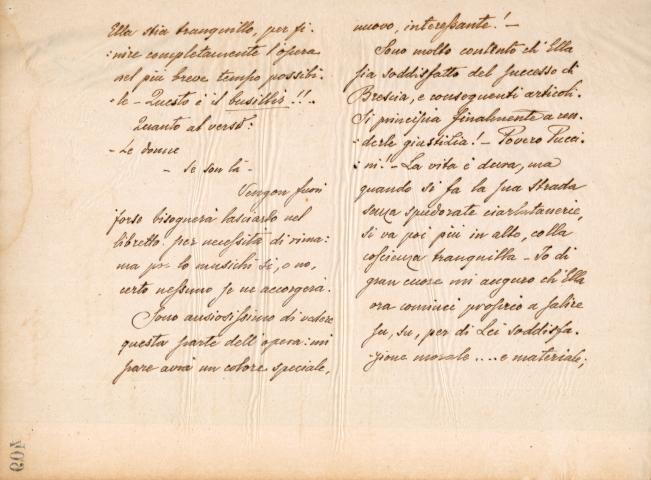 Ella stia tranquillo, per fi-
:nire completamente l'opera
nel più breve tempo possibi-
:le – Questo è il busillis!!..
Quanto al verso:
– Le donne
– se son là –
Vengon fuori
forse bisognerà lasciarlo nel
libretto per necessità di rima:
ma lo musichi Lei, o no,
certo nessuno se ne accorgerà.
Sono ansiosissimo di vedere
questa parte dell'opera: mi
pare avrà un colore speciale,
nuovo, interessante! –
Sono molto contento ch'Ella
sia soddisfatto del successo di
Brescia, e conseguenti articoli.
Si principia finalmente a ren-
:derle giustizia! – Povero Pucci-
:ni! – La vita è dura, ma
quando si fa la sua strada
senza spudorate ciarlatanerie,
si va poi più in alto, colla
coscienza tranquilla – Io di
gran cuore mi auguro ch'Ella
ora cominci proprio a salire
su, su, per di Lei soddisfa-
zione morale .... e materiale;
109